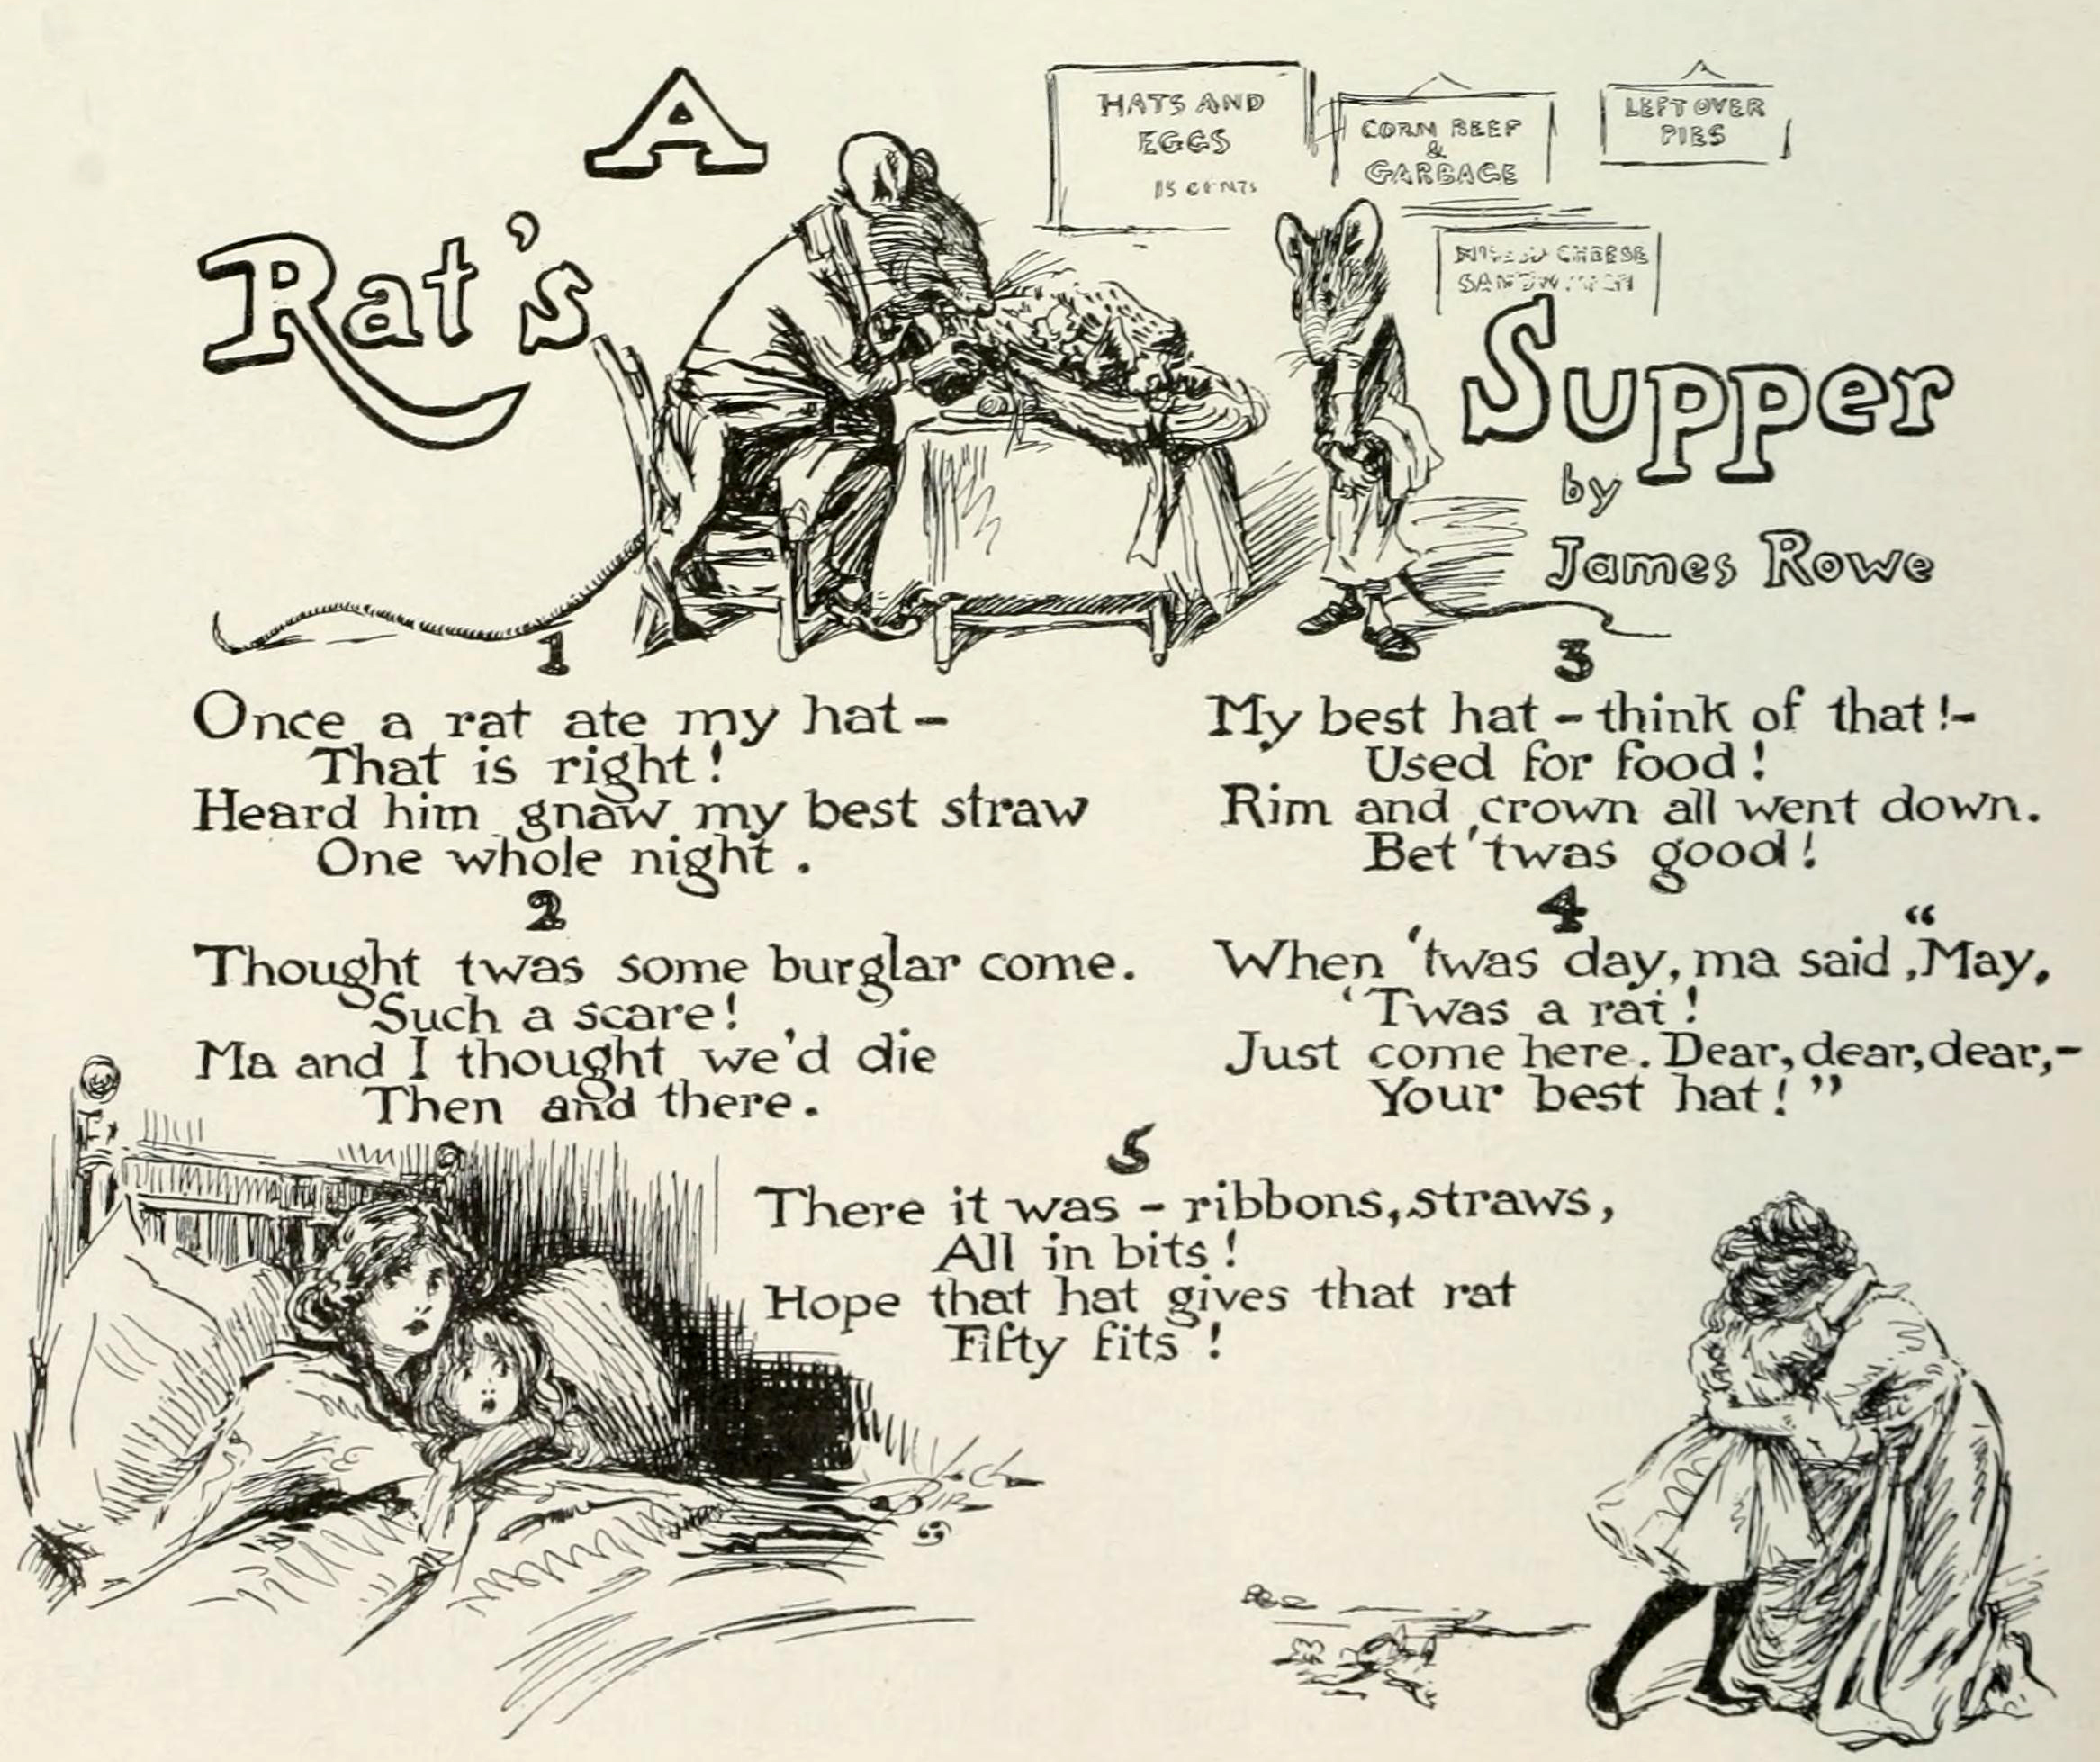 A
Rat's
Supper
by
James Rowe
HATS AND
EGGS
15 CENTS
CORN BEEF
&
GARBAGE
LEFT OVER
PIES
CHEESE
1
Once a rat ate my hat –
That is right!
Heard him gnaw my best straw
One whole night.
2
Thought twas some burglar come.
Such a scare!
Ma and I thought we'd die
Then and there.
3
My best hat – think of that!–
Used for food!
Rim and crown all went down.
Bet 'twas good!
4
When 'twas day, ma said, "May,
'Twas a rat!
Just come here. Dear, dear, dear,–
Your best hat!"
5
There it was – ribbons, straws,
All in bits!
Hope that hat gives that rat
Fifty fits!